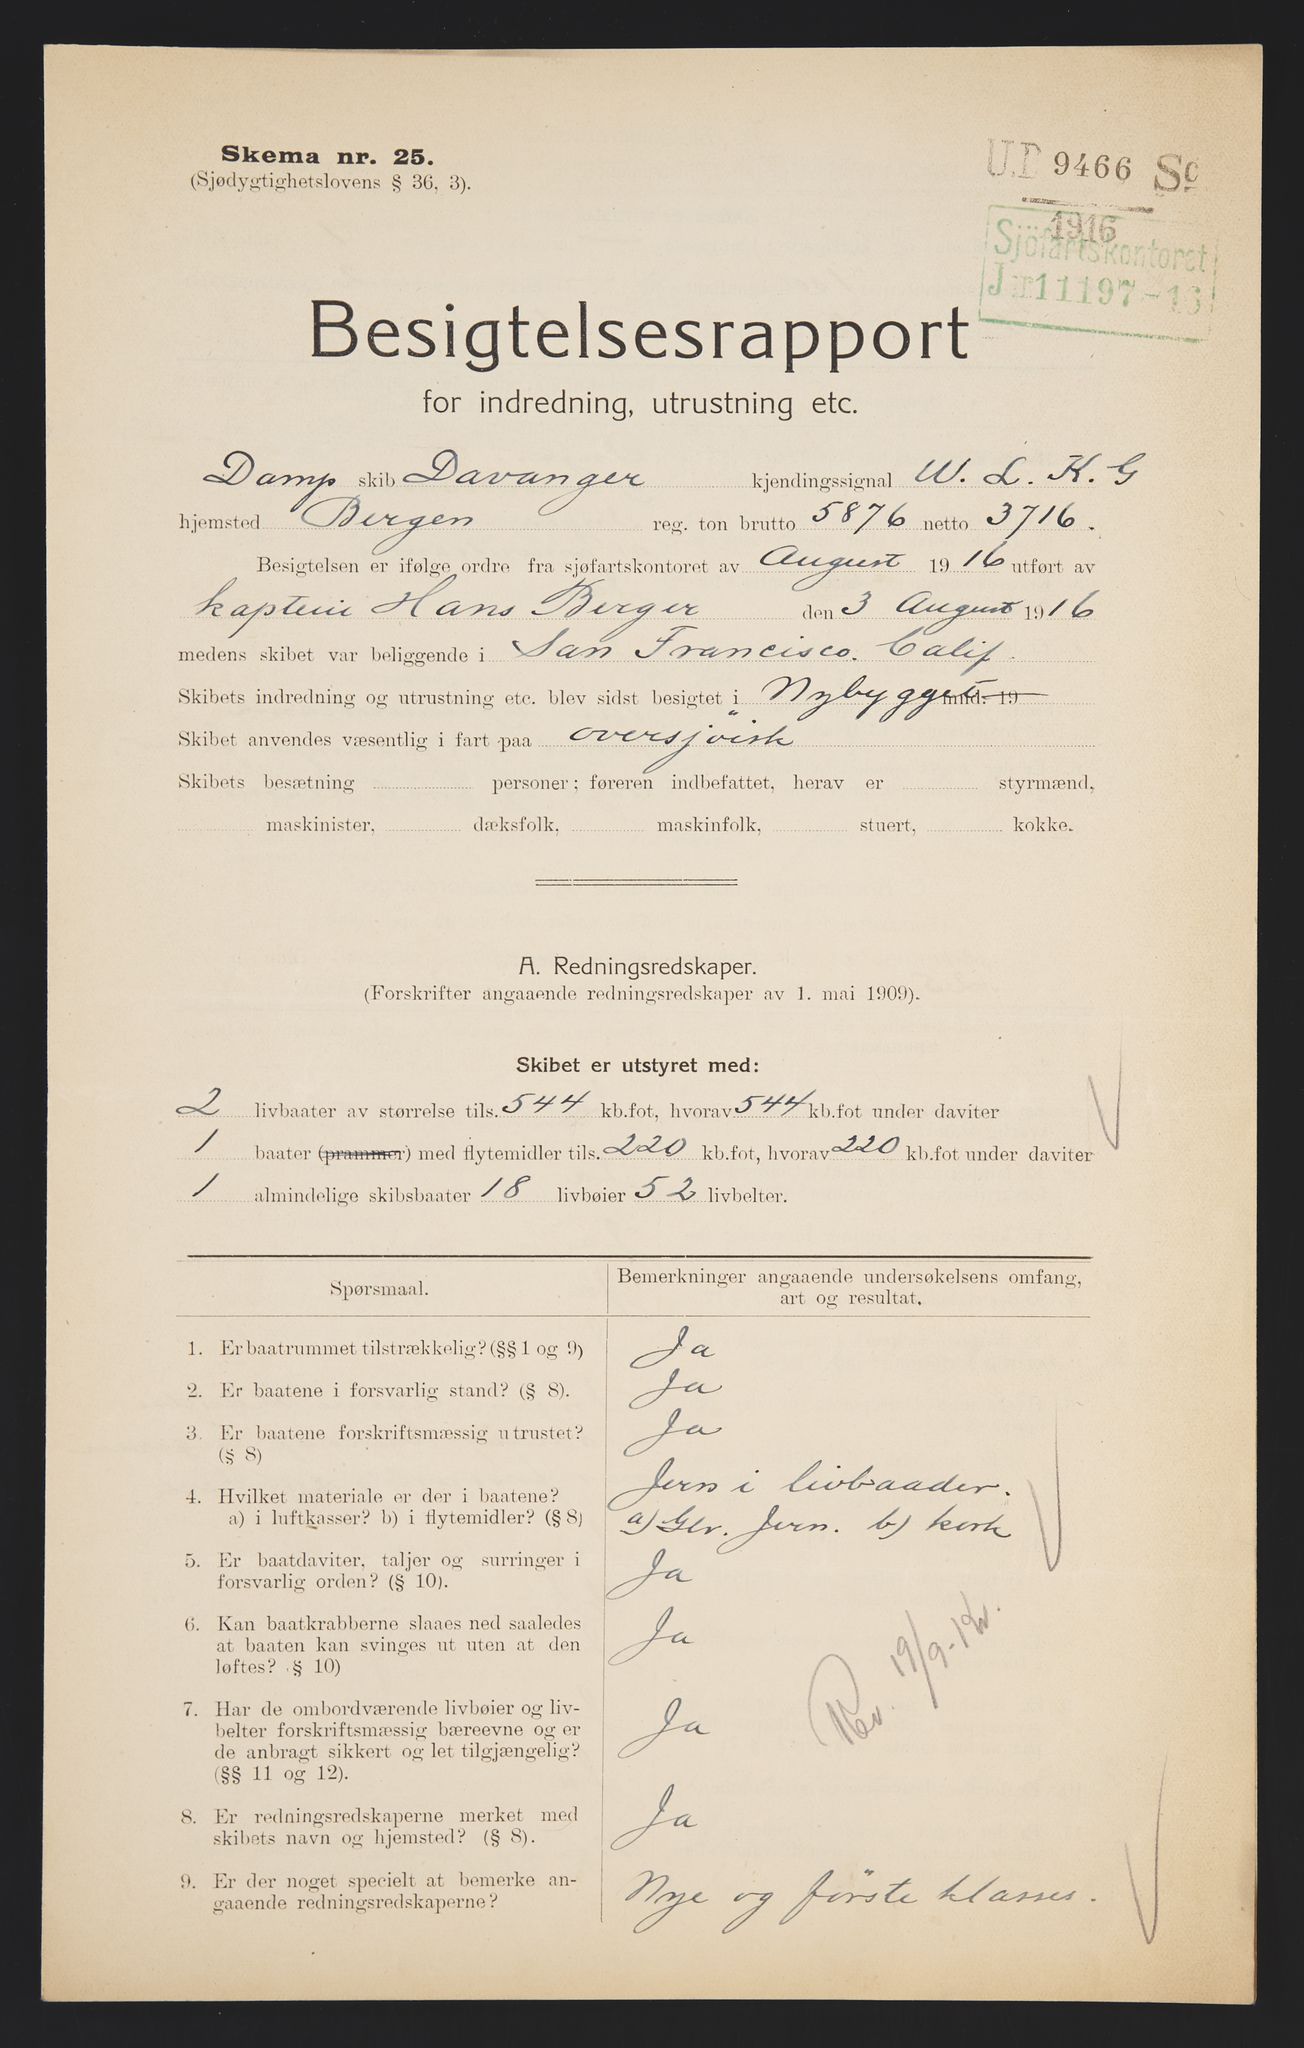 Skema nr. 25.
(Sjødygtighetslovens § 36, 3).
U.D 9466 Sc
1916
Sjöfartskontoret
Jnr 11197-16
Besigtelsesrapport
for indredning, utrustning etc.
Damp skib Davanger kjendingssignal W. L. K. G
hjemsted Bergen reg. ton brutto 5876 netto 3716.
Besigtelsen er ifølge ordre fra sjøfartskontoret av August 1916 utført av
kaptein Hans Berger den 3 August 1916
medens skibet var beliggende i San Francisco. Calif.
Skibets indredning og utrustning etc. blev sidst besigtet i Nybygget mnd. 19
Skibet anvendes væsentlig i fart paa oversjöisk
Skibets besætning personer; føreren indbefattet, herav er styrmænd,
maskinister, dæksfolk, maskinfolk, stuert, kokke.
A. Redningsredskaper.
(Forskrifter angaaende redningsredskaper av 1. mai 1909).
Skibet er utstyret med:
2 livbaater av størrelse tils. 544 kb.fot, hvorav 544 kb.fot under daviter
1 baater (prammer) med flytemidler tils. 220 kb.fot, hvorav 220 kb.fot under daviter
1 almindelige skibsbaater 18 livbøier 52 livbelter.
Spørsmaal.
Bemerkninger angaaende undersøkelsens omfang,
art og resultat.
1. Er baatrummet tilstrækkelig? (§§ 1 og 9)
Ja
2. Er baatene i forsvarlig stand? (§ 8).
Ja
3. Er baatene forskriftsmæssig utrustet?
(§ 8)
Ja
4. Hvilket materiale er der i baatene?
a) i luftkasser? b) i flytemidler? (§ 8)
Jern i livbaader.
a) Glv. Jern. b) kork
5. Er baatdaviter, taljer og surringer i
forsvarlig orden? (§ 10).
Ja
6. Kan baatkrabberne slaaes ned saaledes
at baaten kan svinges ut uten at den
løftes? § 10)
Ja
7. Har de ombordværende livbøier og liv-
belter forskriftsmæssig bæreevne og er
de anbragt sikkert og let tilgjængelig?
(§§ 11 og 12).
Ja
8. Er redningsredskaperne merket med
skibets navn og hjemsted? (§ 8).
Ja
9. Er der noget specielt at bemerke an-
gaaende redningsredskaperne?
Nye og förste klasses.
Rev. 19/9-16